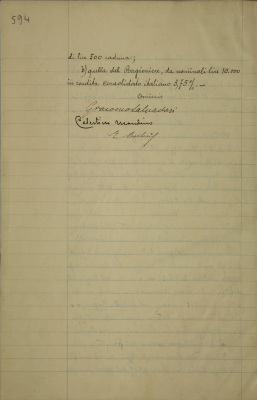 594
di lire 500 caduna;
2) quella del Ragioniere, da nominali lire 10.000
in rendita consolidato italiano 3,75%. —
Giacomo Salvadori
Celestino